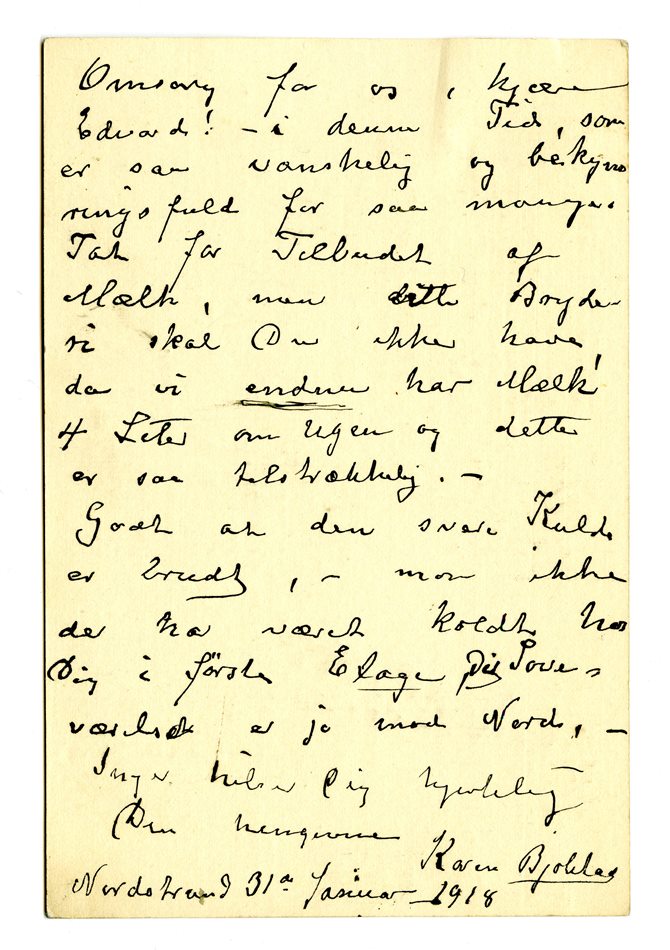 Omsorg for os, kjære
Edvard! – i denne Tid, som
er saa vanskelig og bekym
ringsfuld for saa mange.
Tak for Tilbudet af
Mælk, men dette Bryde-
ri skal Du ikke have,
da vi endnu har Mælk
4 Liter om Ugen og dette
er saa tilstrækkelig. –
Godt at den svære Kulde
er brudt, – mon ikke
der har været koldt hos
Dig i første Etage, Dit Sove-
værelse er jo mod Nord, –
Inger hilser Dig hjertelig
Din hengivne
Karen Bjølstad
Nordstrand 31te Januar 1918